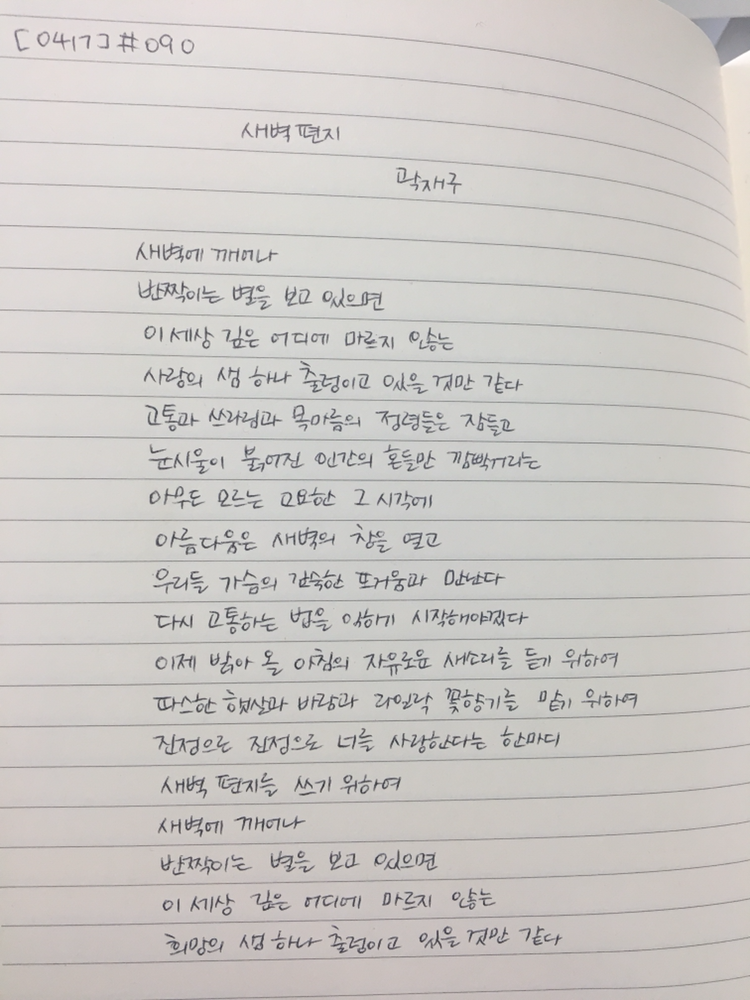 [0417] #090
새벽 편지
곽재구
새벽에 깨어나
반짝이는 별을 보고 있으면
이 세상 깊은 어디에 마르지 않는
사랑의 샘 하나 출렁이고 있을 것만 같다
고통과 쓰라림과 목마름의 정령들은 잠들고
눈시울이 붉어진 인간의 혼들만 깜빡거리는
아무도 모르는 고요한 그 시각에
아름다움은 새벽의 창을 열고
우리들 가슴의 깊숙한 뜨거움과 만난다
다시 고통하는 법을 익히기 시작해야겠다
이제 밝아 올 아침의 자유로운 새소리를 듣기 위하여
따스한 햇살과 바람과 라일락 꽃향기를 맡기 위하여
진정으로 진정으로 너를 사랑한다는 한마디
새벽 편지를 쓰기 위하여
새벽에 깨어나
반짝이는 별을 보고 있으면
이 세상 깊은 어디에 마르지 않는
희망의 샘 하나 출렁이고 있을 것만 같다